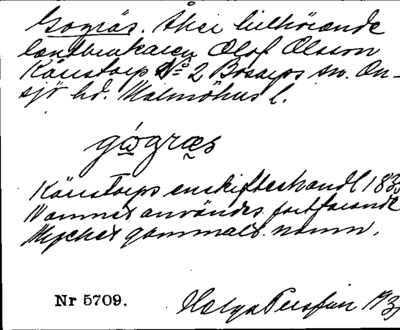 Gogräs. Åker tillhörande
lantbrukaren Olof Olsson
Kärstorp No 2 Bosarps sn. On-
sjö hd. Malmöhus l.
gógræs
Kärstorps enskifteshandl 183
Namnet användes fortfarande
Mycket gammalt namn.
Nr 5709.
Helga Persson 193